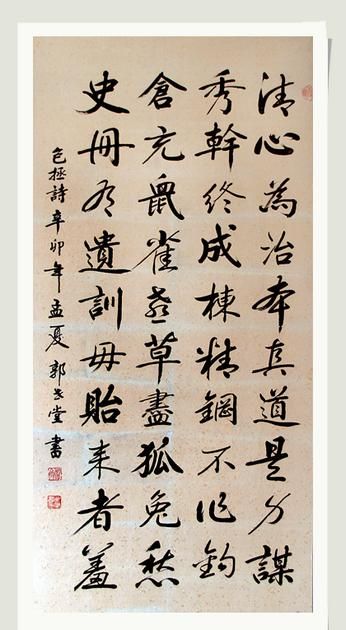 清心為治本直道是身謀
秀幹終成棟精鋼不作鈎
倉充鼠雀喜草盡狐兔愁
史冊有遺訓毋貽來者羞
包拯詩辛卯年孟夏郭堂書